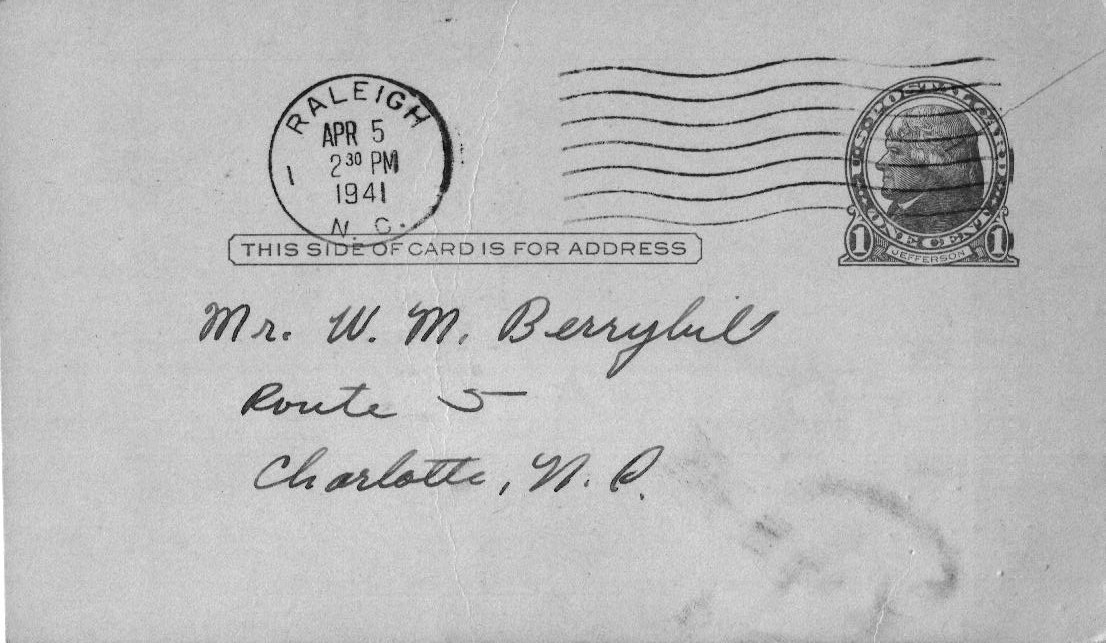 RALEIGH
APR 5
2 30 PM
1
1941
N. C.
U.S. POSTAL CARD
ONE CENT
1 JEFFERSON 1
THIS SIDE OF CARD IS FOR ADDRESS
Mr. W. M. Berryhill
Route 5
Charlotte, N. C.